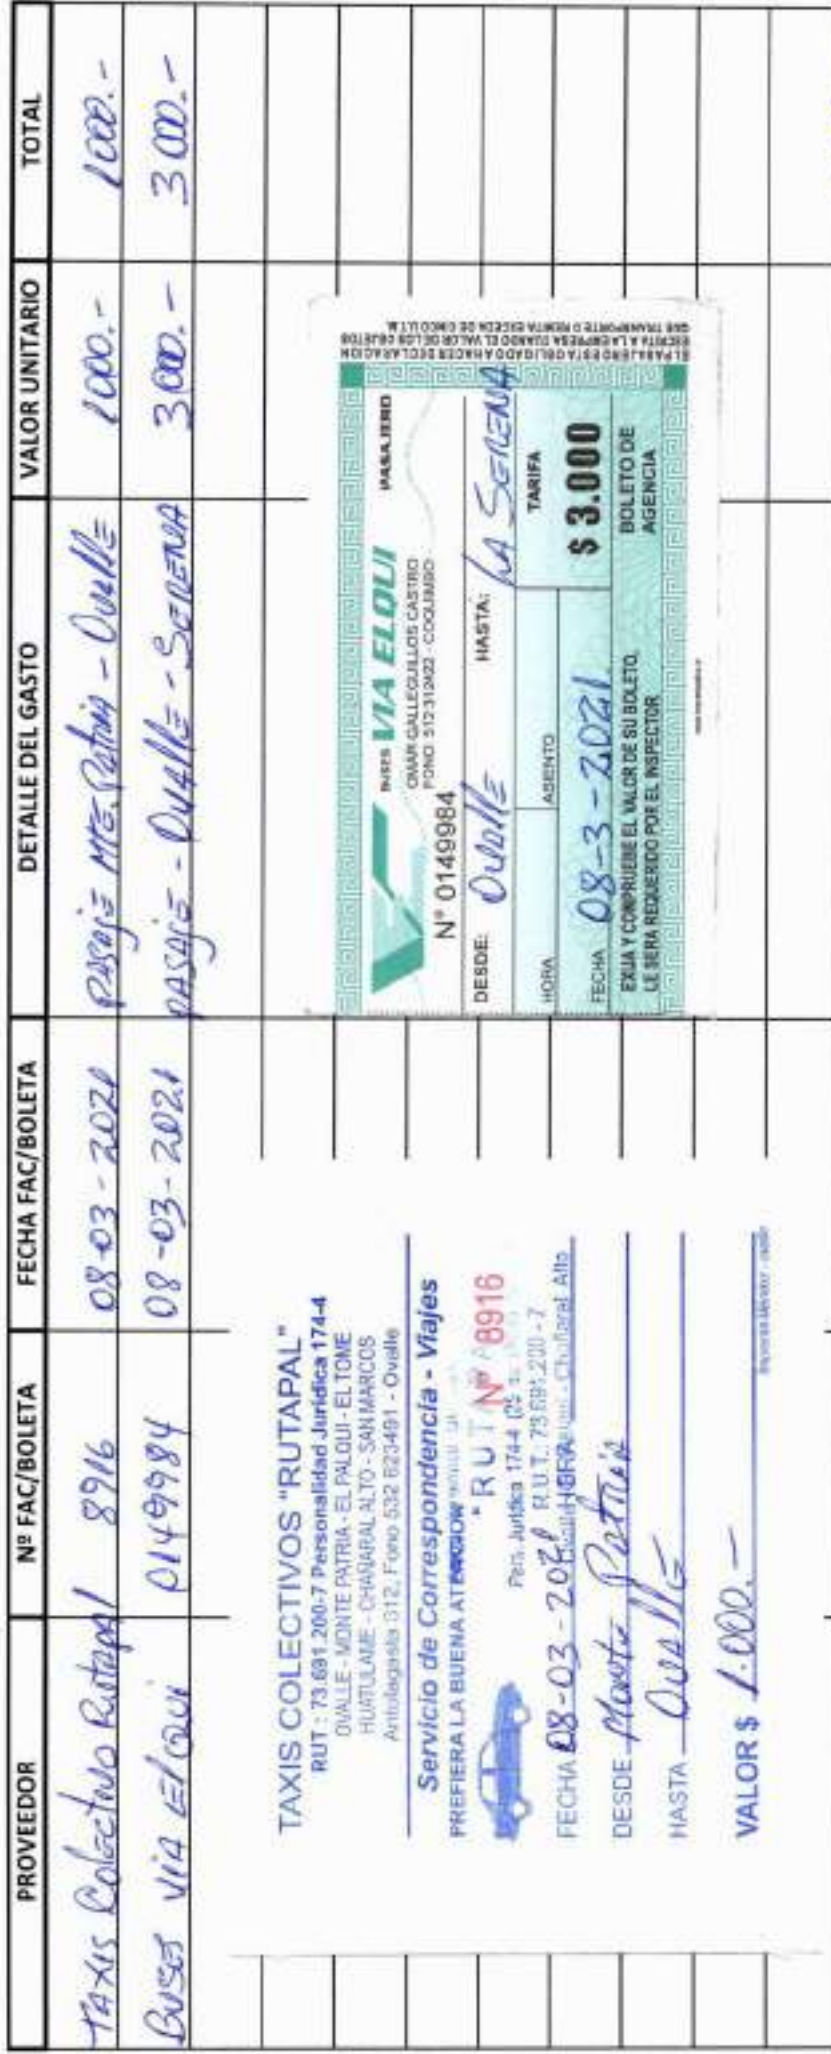 PROVEEDOR Nº FAC/BOLETA FECHA FAC/BOLETA DETALLE DEL GASTO VALOR UNITARIO TOTAL
TAXIS Colectivo Rutapal 8916 08-03-2021 PASAJE MTE. Patria - Ovalle 1000.- 1000.-
BUSES VIA ElQui 0149984 08-03-2021 PASAJE - OVAllE - SERENA 3000.- 3000.-
TAXIS COLECTIVOS "RUTAPAL"
RUT : 73.691.200-7 Personalidad Jurídica 174-4
OVALLE - MONTE PATRIA - EL PALQUI - EL TOME
HUATULAME - CHAÑARAL ALTO - SAN MARCOS
Antofagasta 312, Fono 532 623491 - Ovalle
Servicio de Correspondencia - Viajes
PREFIERA LA BUENA ATENCION
"RUT
Nº 8916
Pers. Jurídica 174-4
R.U.T. 73.691.200-7
Chañaral Alto
FECHA 08-03-2021 HORA
DESDE Monte Patria
HASTA OVAllE
VALOR $ 1.000.-
BUSES VIA ELQUI PASAJERO
OMAR GALLEGUILLOS CASTRO
FONO 512 312422 - COQUIMBO
N° 0149984
DESDE: Ovalle HASTA: LA SERENA
HORA ASIENTO TARIFA
FECHA 08-3-2021 $ 3.000
EXIJA Y COMPRUEBE EL VALOR DE SU BOLETO,
LE SERA REQUERIDO POR EL INSPECTOR
BOLETO DE
AGENCIA
EL PASAJERO ESTA OBLIGADO A HACER DECLARACION
ESCRITA A LA EMPRESA CUANDO EL VALOR DE LOS OBJETOS
QUE TRANSPORTE O REMITA EXCEDA DE CINCO U.T.M.